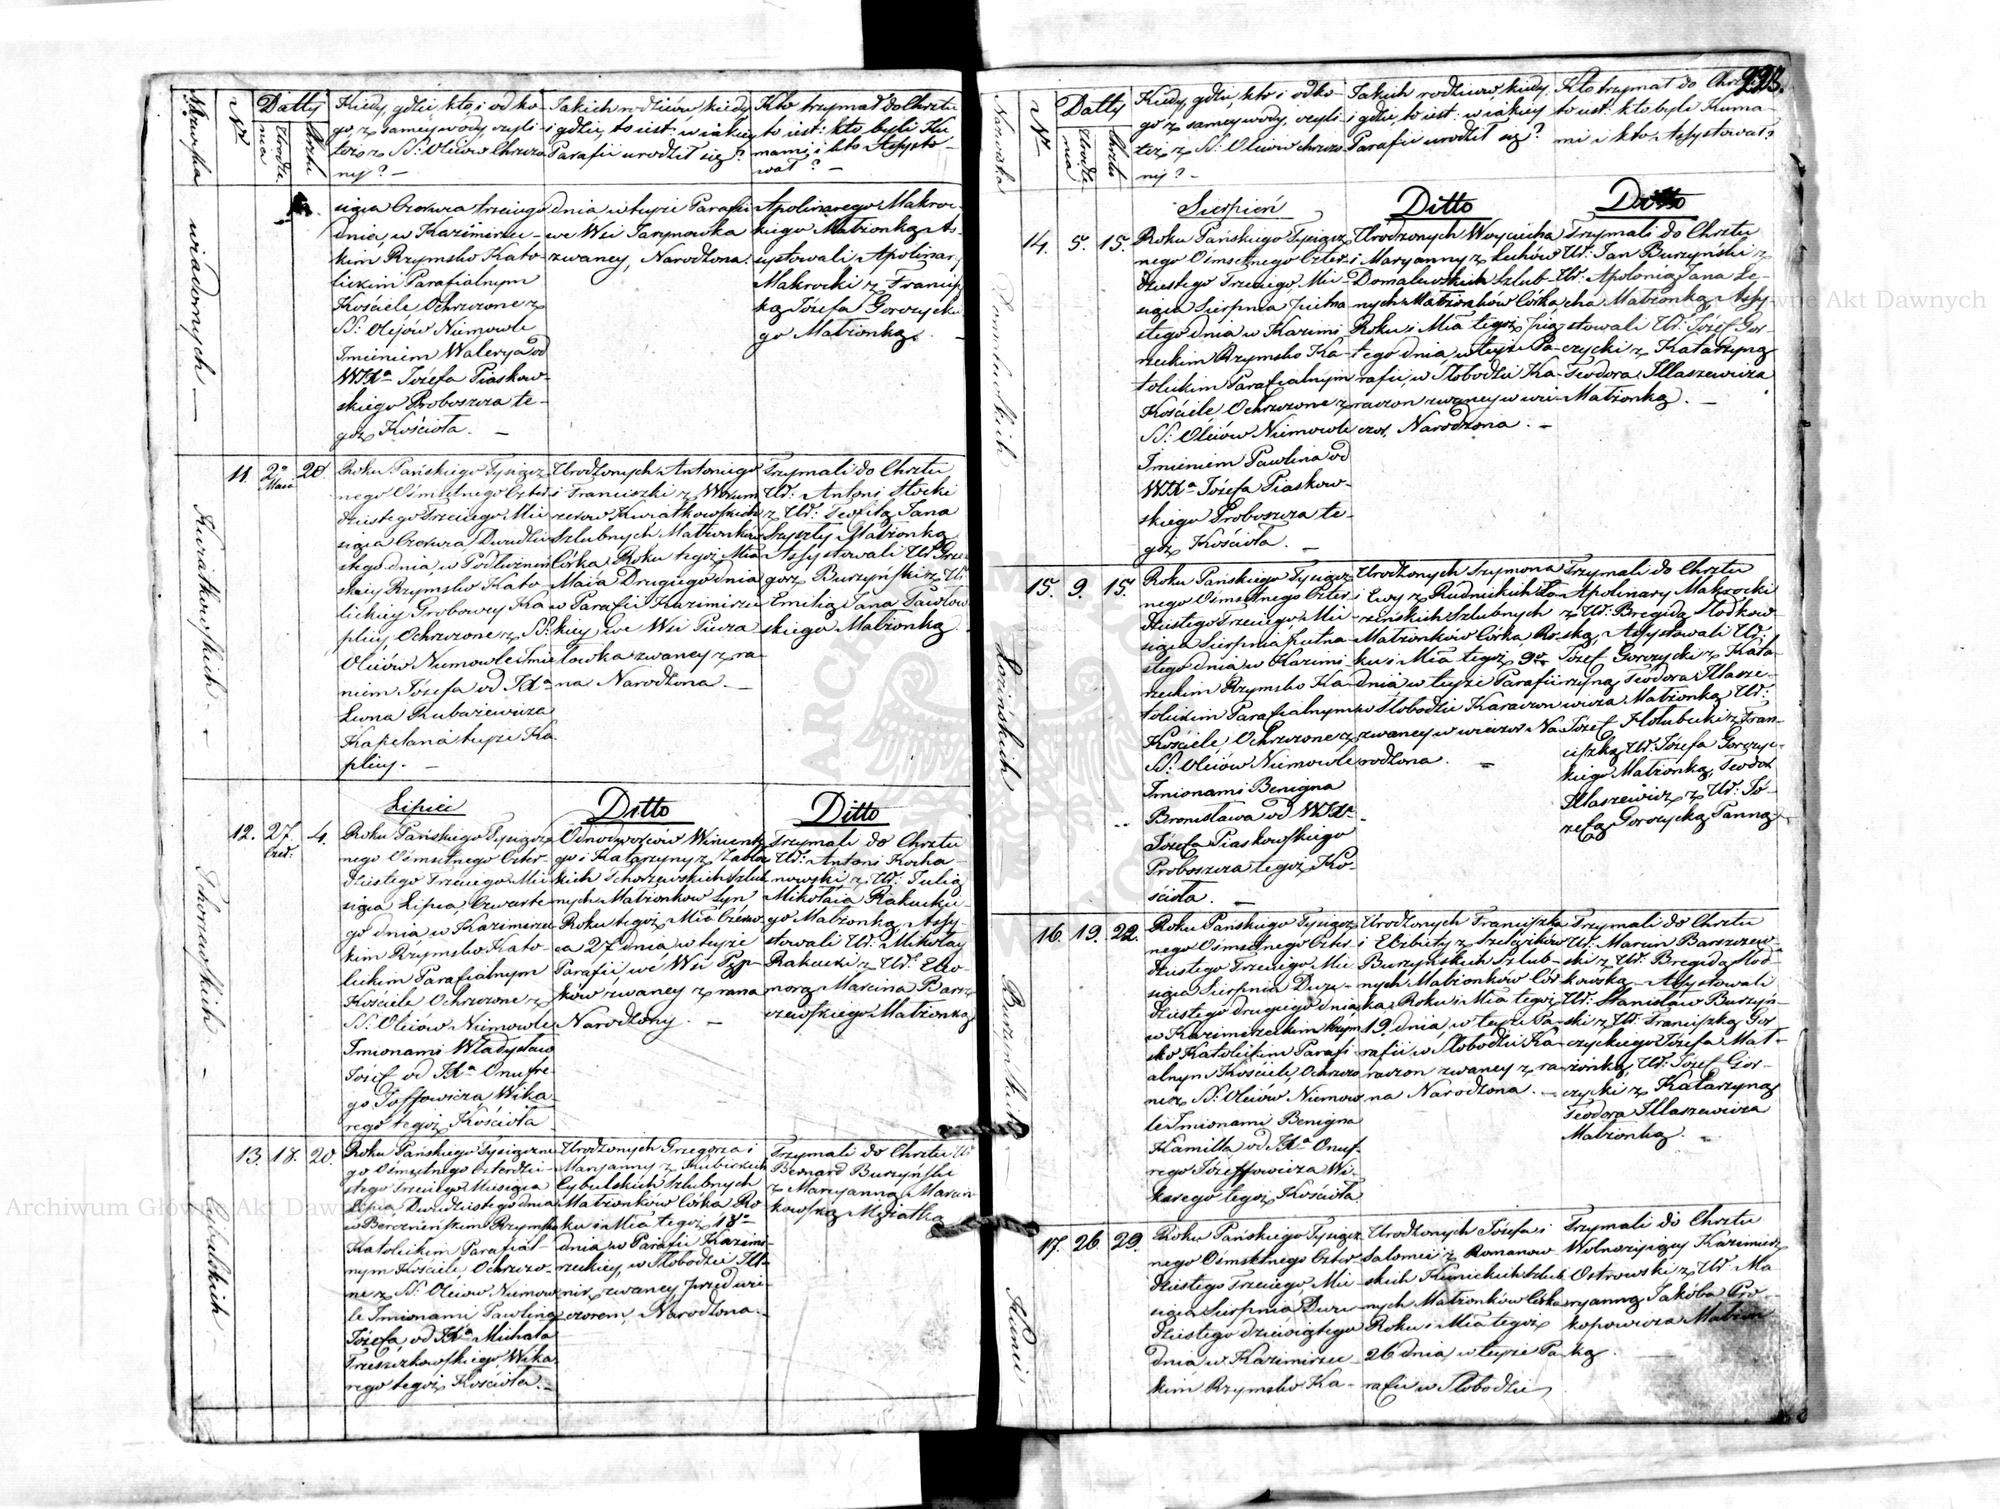 Nazwiska
Nr
Datty
Urodze
nia
Chrztu
Kiedy, gdzie, kto, i od ko-
go, z samey wody, czyli
też z SS: Oleiów Chrzczo
ny? —
Jakich rodziców, kiedy
i gdzie, to iest: w iakiey
Parafii urodził się?
Kto trzymał do Chrztu
to iest: kto byli Ku
mami, i kto Assysto-
wał? —
wiadomych —
siąca Czerwca trzeciego
dnia, w Kazimirzec-
kim Rzymsko Kato-
lickim Parafialnym
Kościele Ochrzczone z
SS: Olejów Niemowle
Imieniem Walerya od
WJXa Józefa Piaskow-
skiego Proboszcza te-
goż Kościoła. —
dnia w teyże Parafii
we Wsi Jarynowka
zwaney, Narodzona.
Apolinarego Makroc-
kiego Małżonką As-
systowali Apolinary
Makrocki z Francisz
ką Józefa Gorczycki
go Małżonką. —
Kwiatkowskich —
11.
2a
Maia
20
Roku Pańskiego Tysiącz
nego Ośmsetnego Czter
dziestego Trzeciego Mie
siąca Czerwca Dwudzie
stego dnia, w Podłużnin
skiey Rzymsko Kato-
lickiey Grobowey Ka
plicy, Ochrzczone z SS:
Oleiów Niemowle Imie
niem Józefa od JXa
Leona Kubarzewicza
Kapelana teyże Ka
plicy. —
Urodzonych Antoniego
i Franciszki z Worum
zerow Kwiatkowskich
Szlubnych Małżonków
Córka, Roku tegoż Mca
Maia Drugiego dnia
w Parafii Kazimirzec
kiey, we Wsi Piecza
łowka zwaney z ra
na Narodzona. —
Trzymali do Chrztu
Ur: Antoni Słocki
z Ur: Teofilą Jana
Assystowali Ur: Grze
gorz Burzyński z Ur:
Emilią Jana Pawłow
skiego Małżonką.
Lipiec
Ditto
Ditto
12.
27.
Czer:
4.
Roku Pańskiego Tysiącz
nego Ośmsetnego Czter-
dziestego Trzeciego Mie
siąca Lipca, Czwarte
go dnia w Kazimirzec
kim Rzymsko Kato-
lickim Parafialnym
Kościele Ochrzczone z
SS: Oleiów Niemowle
Imionami Władysław
Józef od JXa Onufre
go Wika
rego tegoż Kościoła
Odnodworców Wincente
go i Katarzyny z Zabło
kich Szlub
nych Małżonków Syn
Roku tegoż Mca Czerw
ca 27 dnia w teyże
Parafii we Wsi
ków zwaney z rana
Narodzony. —
Trzymali do Chrztu
Ur: Antoni Kocha
nowski z Ur: Julią
Mikołaia Rakucki
go Małżonką Assy-
stowali Ur: Mikołay
Rakucki z Ur: Eleo-
norą Marcina Barsz
czewskiego Małżonką
13.
18.
20.
Cybulskich —
Roku Pańskiego Tysiączne
go Ośmsetnego Czterdzie-
stego Trzeciego Miesiąca
Lipca, Dwudziestego dnia
w Berezneńskim Rzymsko
Katolickim Parafial-
nym Kościele Ochrzczo-
ne z SS: Oleiów Niemow
le Imionami Paulina
Józefa, od JXa Michała
Trzeszczkowskiego Wika
rego tegoż Kościoła. —
Urodzonych Grzegorza i
Maryanny z Kubickich
Cybulskich Szlubnych
Małżonków Córka Ro
ku i Mca tegoż 18o
dnia w Parafii Kazimi-
rzeckiey, w Słobodzie
zwaney przed wie
czorem, Narodzona.
Trzymali do Chrztu Ur
Bernard Burzyński
z Maryanną Marcin
kowską Mężatką
223.
Nazwiska
Nr
Datty
Urodze
nia
Chrztu
Kiedy, gdzie, kto i od ko-
go z samey wody, czyli
też z SS: Oleiów Chrzczo
ny? —
Jakich rodziców, kiedy
i gdzie, to iest: w iakiey
Parafii urodził się?
Kto trzymał do Chrztu
to iest: kto byli Kuma-
mi i kto Assystował?
Sierpień
Ditto
Ditto
14.
5.
15.
Domalewskich
Roku Pańskiego Tysiącz
nego Ośmsetnego Czter
dziestego Trzeciego Mie
siąca Sierpnia Piętna
stego dnia w Kazimi
rzeckim Rzymsko Ka-
tolickim Parafialnym
Kościele Ochrzczone z
SS: Oleiów Niemowle
Imieniem Pawlina od
WJXa Józefa Piaskow-
skiego Proboszcza te-
goż Kościoła. —
Urodzonych Woyciecha
i Maryanny z Lechów
Domalewskich Szlub-
nych Małżonków Córka,
Roku i Mca tegoż pią
tego dnia, w teyże Pa-
rafii, w Słobodzie Ka-
raczon zwaney w wie
czor, Narodzona. —
Trzymali do Chrztu
Ur: Jan Burzyński z
Ur: Apolonią Jana Le-
cha Małżonką Assy
stowali Ur: Józef Gor-
czycki z Katarzyną
Teodora Illaszewicza
Małżonką. —
15.
9.
15.
Łozińskich
Roku Pańskiego Tysiącz
nego Ośmsetnego Czter
dziestego trzeciego, Mie
siąca Sierpnia Piętna
stego dnia w Kazimi
rzeckim Rzymsko Ka
tolickim Parafialnym
Kościele, Ochrzczone z
SS: Oleiów Niemowle
Imionami Benigna
Bronisława od WJXa
Józefa Piaskowskiego
Proboszcza tegoż Ko-
ścioła. —
Urodzonych Szymona
i Ewy z Rudnickich Ło
zińskich Szlubnych
Małżonków Córka, Ro
ku i Mca tegoż 9o
dnia w teyże Parafii
w Słobodzie Karaczon
zwaney w wieczor Na
rodzona. —
Trzymali do Chrztu
Apolinary Makrocki
z Ur: Bregidą Słodkow-
ską, Assystowali Ur:
Józef Gorczycki z Kata-
rzyną Teodora Illasze-
wicza Małżonką, Ur:
Józef Hołubicki z Fran-
ciszką, Ur: Józefa Gorczyc-
kiego Małżonką, Teodor
Illaszewicz z Ur: Jó-
zefą Gorczycką Panną.
16.
19.
22.
Burzyńskich
Roku Pańskiego Tysiącz
nego Ośmsetnego Czter-
dziestego Trzeciego Mie
siąca Sierpnia Dwu-
dziestego drugiego dnia
w Kazimirzeckim Rzym
sko Katolickim Parafi
alnym Kościele, Ochrzczo
ne z SS: Oleiów Niemow
le Imionami Benigna
Kamilla od JXa Onuf-
rego Józeffowicza Wi-
karego tegoż Kościoła
Urodzonych Franciszka
i Elżbiety z Szelążków
Burzyńskich Szlub-
nych Małżonków Cór
ka, Roku i Mca tegoż
19. dnia, w teyże Pa-
rafii, w Słobodzie Ka-
raczon zwaney z ra-
na Narodzona. —
Trzymali do Chrztu
Ur: Marcin Barszczew-
ski z Ur: Bregidą Słod
kowską, Assystowali
Ur: Stanisław Burzyń-
ski z Ur: Franciszką Gor
czyckiego Józefa Mał-
żonką, Ur: Józef Gor-
czycki z Katarzyną
Teodora Illaszewicza
Małżonką. —
17.
26.
29.
Kunic —
Roku Pańskiego Tysiącz
nego Ośmsetnego Czter-
dziestego Trzeciego, Mie
siąca Sierpnia Dwu
dziestego dziewiątego
dnia w Kazimirzec
kim Rzymsko Ka-
Urodzonych Józefa i
Salomei z Romanow
skich Kunickich Szlub
nych Małżonków Córka
Roku i Mca tegoż
26 dnia, w teyże Pa-
rafii w Słobodzie
Trzymali do Chrztu
Wolnorzyiący Kazimierz
Ostrowski z Ur: Ma-
ryanną Jakóba Pro-
kopowicza Małżon
ką.
Archiwum Główne Akt Dawnych
Archiwum Główne Akt Dawnych